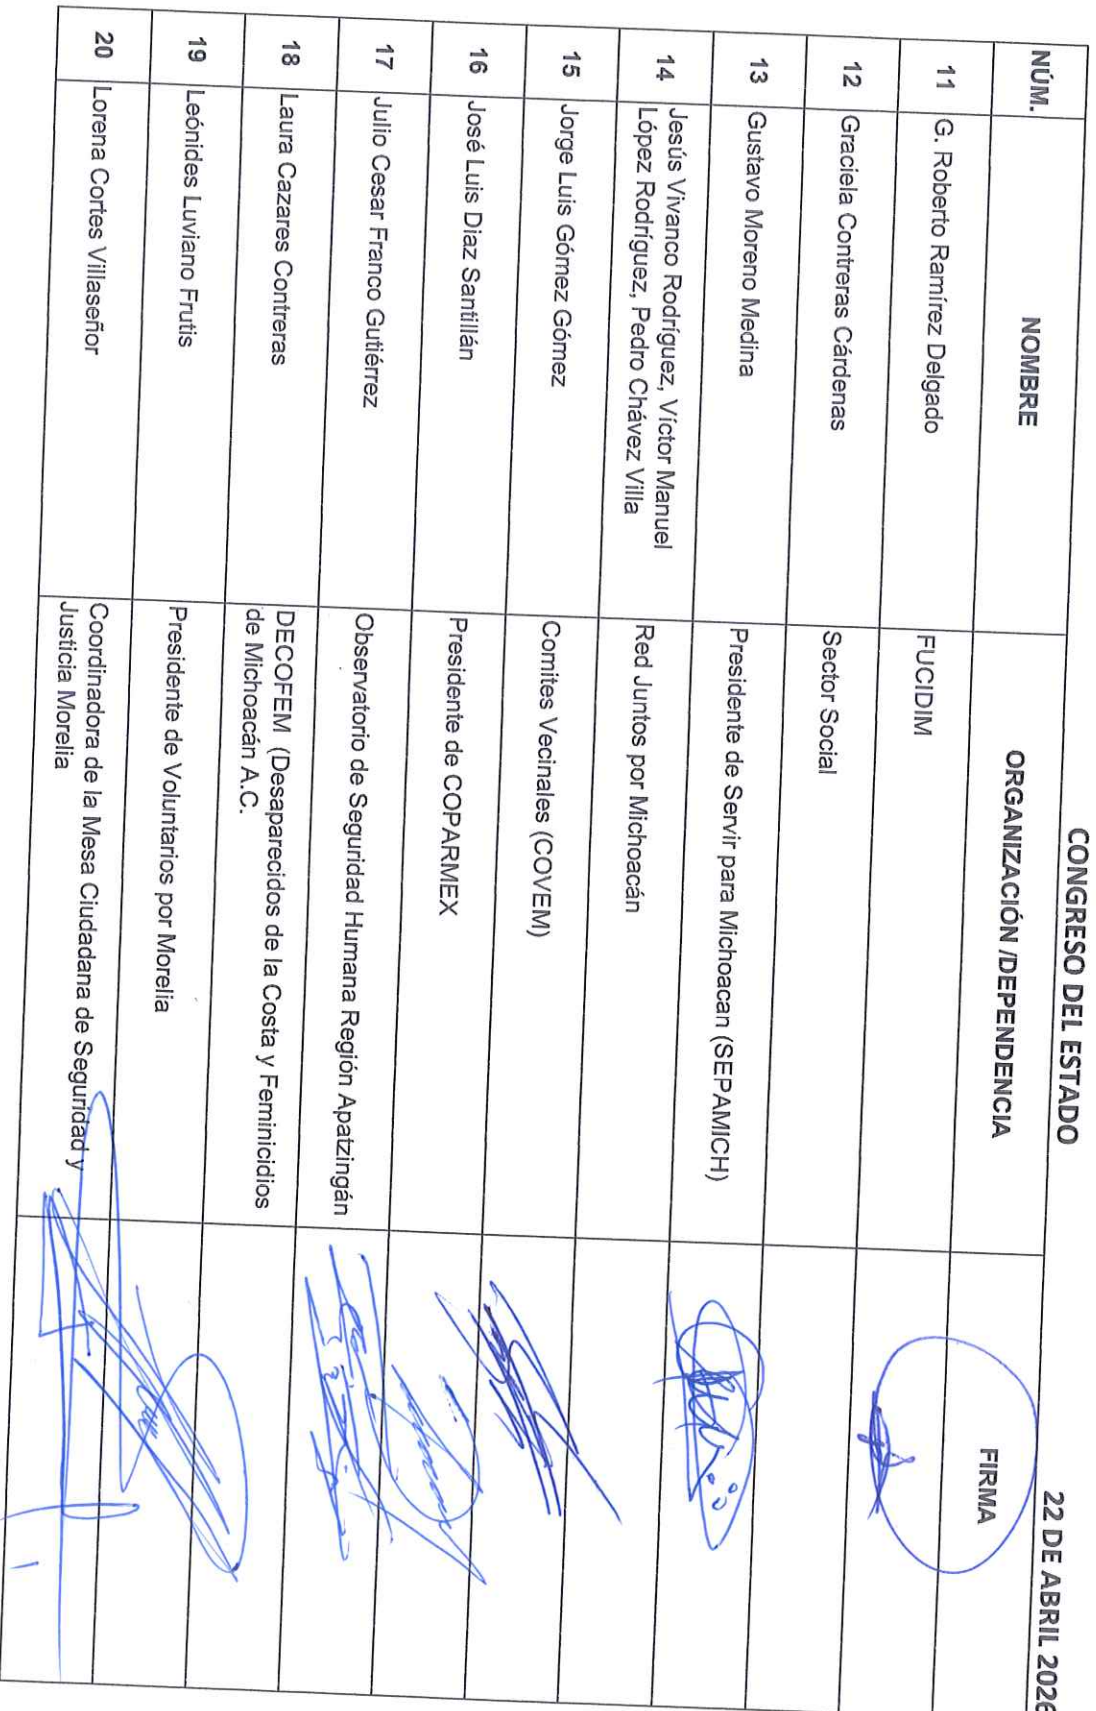 CONGRESO DEL ESTADO
22 DE ABRIL 2026
NÚM. NOMBRE ORGANIZACIÓN /DEPENDENCIA FIRMA
11 G. Roberto Ramírez Delgado FUCIDIM
12 Graciela Contreras Cárdenas Sector Social
13 Gustavo Moreno Medina Presidente de Servir para Michoacan (SEPAMICH)
14 Jesús Vivanco Rodríguez, Víctor Manuel
López Rodríguez, Pedro Chávez Villa Red Juntos por Michoacán
15 Jorge Luis Gómez Gómez Comites Vecinales (COVEM)
16 José Luis Diaz Santillán Presidente de COPARMEX
17 Julio Cesar Franco Gutiérrez Observatorio de Seguridad Humana Región Apatzingán
18 Laura Cazares Contreras DECOFEM (Desaparecidos de la Costa y Feminicidios
de Michoacán A.C.
19 Leónides Luviano Frutis Presidente de Voluntarios por Morelia
20 Lorena Cortes Villaseñor Coordinadora de la Mesa Ciudadana de Seguridad y
Justicia Morelia